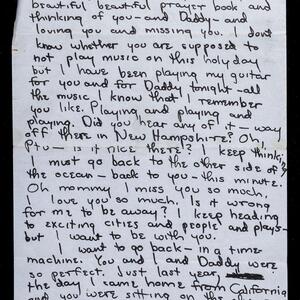 beautiful beautiful prayer book and
thinking of you - and Daddy - and
loving you and missing you. I don't
know whether you are supposed to
not play music on this holy day
but I have been playing my guitar
for you and for Daddy tonight - all
the music I know that I remember
you like. Playing and playing and
playing. Did you hear any of it - way
off there in New Hampshire? Oh,
- is it nice there? I keep thinking
I must go back to the other side of
the ocean - back to you - this minute.
Oh mommy I miss you so much,
I love you so much. Is it wrong
for me to be away? I keep heading
to exciting cities and people and plays -
but I want to be with you.
I want to go back - in a time
machine. You and I and Daddy were
so perfect. Just last year,
the day I came home from California
and you were sitting on the